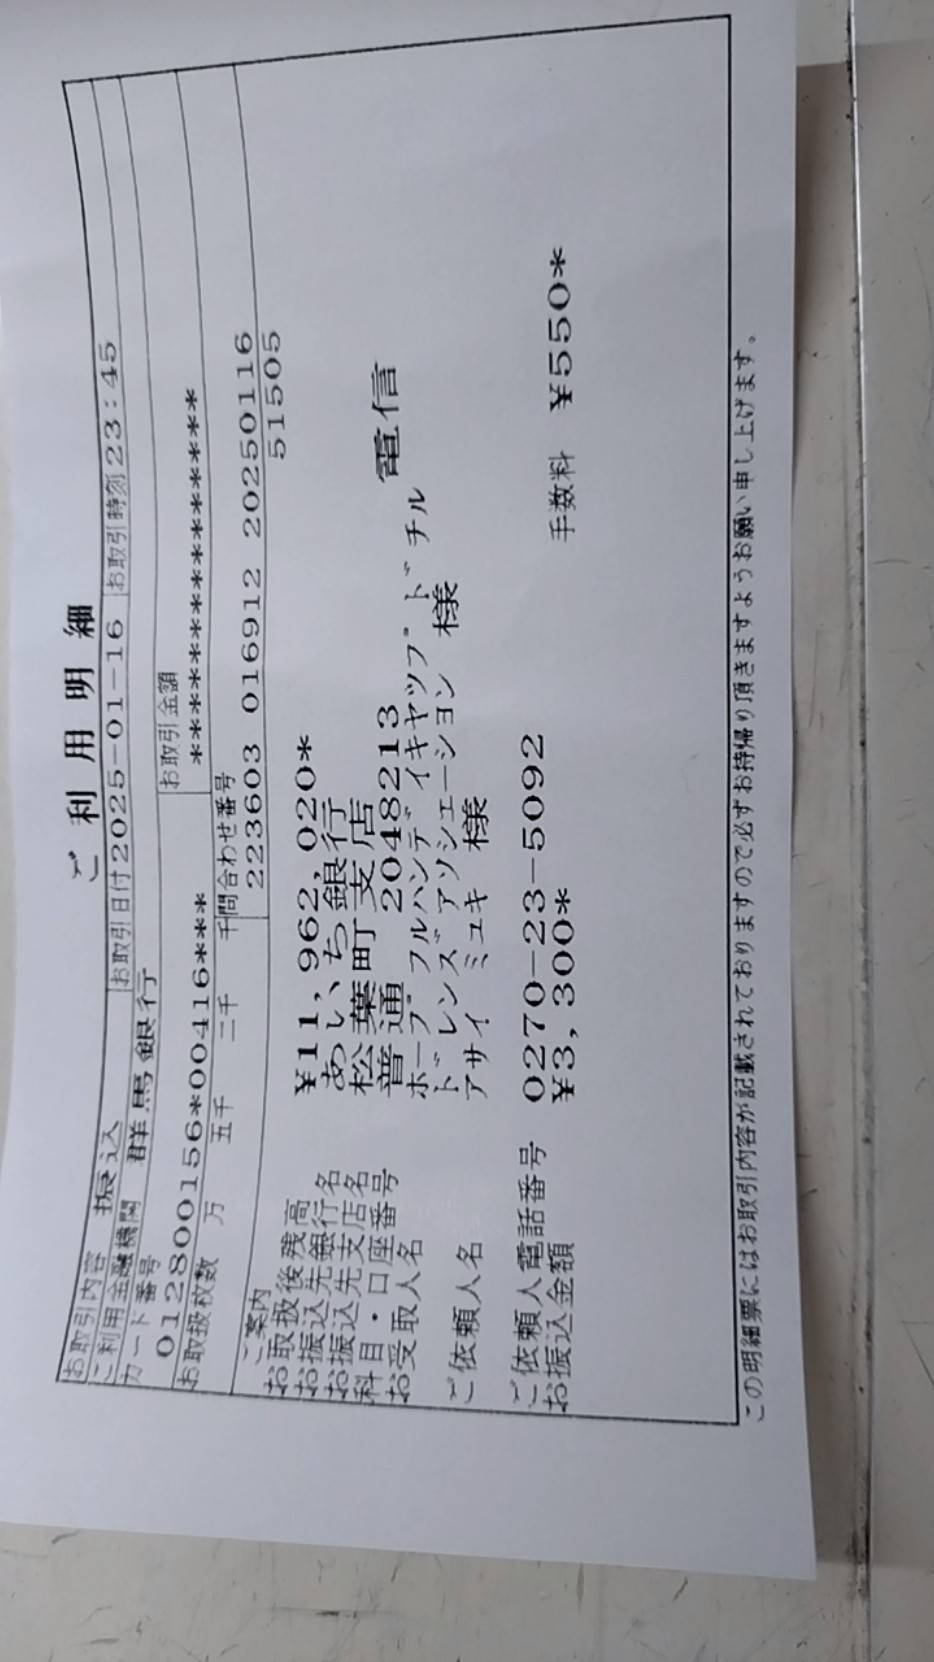 ご利用明細
お取引内容 振込 お取引日付 2025-01-16 お取引時刻 23:45
ご利用金融機関 群馬銀行
カード番号 お取引金額
012800156*00416*** ******************
お取扱枚数 万 五千 二千 千 問合わせ番号
223603 016912 20250116
ご案内 51505
お取扱後残高 ¥11,962,020*
お振込先銀行名 あいち銀行
お振込先支店名 松葉町支店
科目・口座番号 普通 2048213 電信
お受取人名 ホープ フルハンデイキヤツプ ドチル
ドレンズ アソシエーシヨン 様
ご依頼人名 アサイ ミユキ 様
ご依頼人電話番号 0270-23-5092
お振込金額 ¥3,300* 手数料 ¥550*
この明細票にはお取引内容が記載されておりますので必ずお持帰り頂きますようお願い申し上げます。